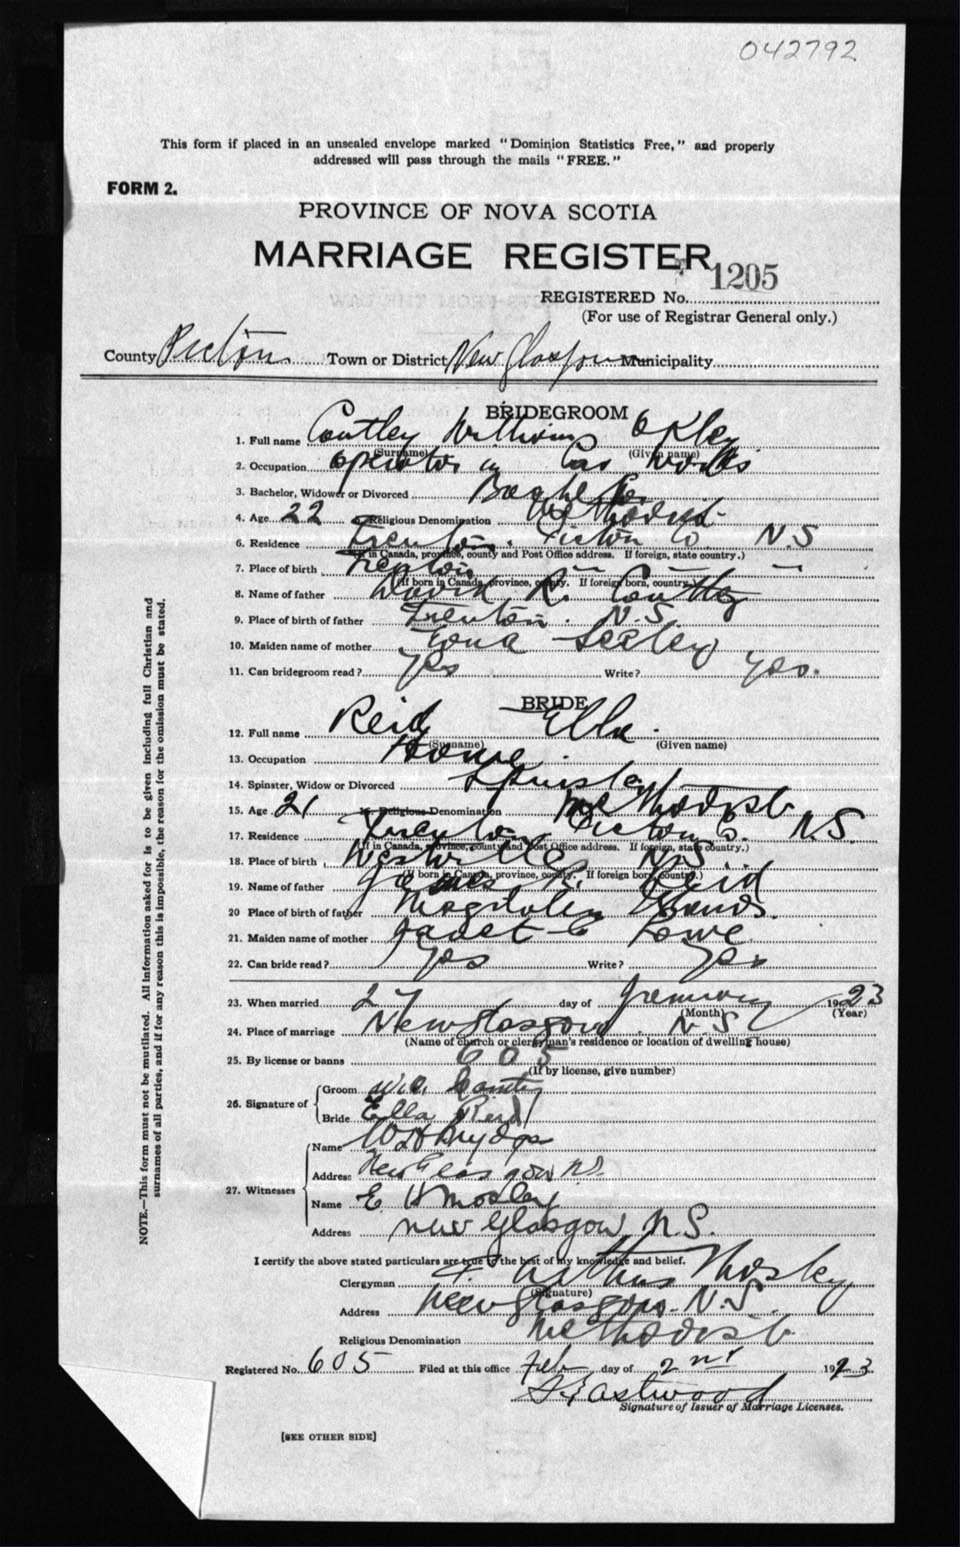 042792
This form if placed in an unsealed envelope marked "Dominion Statistics Free," and properly
addressed will pass through the mails "FREE."
FORM 2.
PROVINCE OF NOVA SCOTIA
MARRIAGE REGISTER
1205
REGISTERED No.
(For use of Registrar General only.)
County Pictou Town or District New Glasgow Municipality
BRIDEGROOM
1. Full name William
(Surname) (Given name)
2. Occupation Operator in Works
3. Bachelor, Widower or Divorced Bachelor
4. Age 22 5. Religious Denomination Methodist
6. Residence Trenton. Pictou Co. N.S
(If in Canada, province, county and Post Office address. If foreign, state country.)
7. Place of birth Trenton
(If born in Canada, province, county. If foreign born, country.)
8. Name of father David R.
9. Place of birth of father Trenton. N.S
10. Maiden name of mother Seeley
11. Can bridegroom read? Yes Write? yes.
BRIDE
12. Full name Reid Ella.
(Surname) (Given name)
13. Occupation Home
14. Spinster, Widow or Divorced Spinster
15. Age 21 16. Religious Denomination Methodist
17. Residence Trenton Pictou Co. N.S.
(If in Canada, province, county and Post Office address. If foreign, state country.)
18. Place of birth Westville N.S.
(If born in Canada, province, county. If foreign born, country.)
19. Name of father James R. Reid
20 Place of birth of father Magdalen Islands.
21. Maiden name of mother Janet C Lowe
22. Can bride read? Yes Write? Yes
23. When married 27 day of January 1923
(Month) (Year)
24. Place of marriage New Glasgow. N.S
(Name of church or clergyman's residence or location of dwelling house)
25. By license or banns 605
(If by license, give number)
26. Signature of Groom
Bride Ella Reid
27. Witnesses Name
Address New Glasgow N.S.
Name E H Mosley
Address New Glasgow N.S.
I certify the above stated particulars are true to the best of my knowledge and belief.
Clergyman Arthur Mosley
(Signature)
Address New Glasgow. N.S.
Religious Denomination Methodist
Registered No. 605 Filed at this office Feb day of 2nd 1923
Eastwood
Signature of Issuer of Marriage Licenses.
[SEE OTHER SIDE]
NOTE.—This form must not be mutilated. All information asked for is to be given including full Christian and
surnames of all parties, and if for any reason this is impossible, the reason for the omission must be stated.